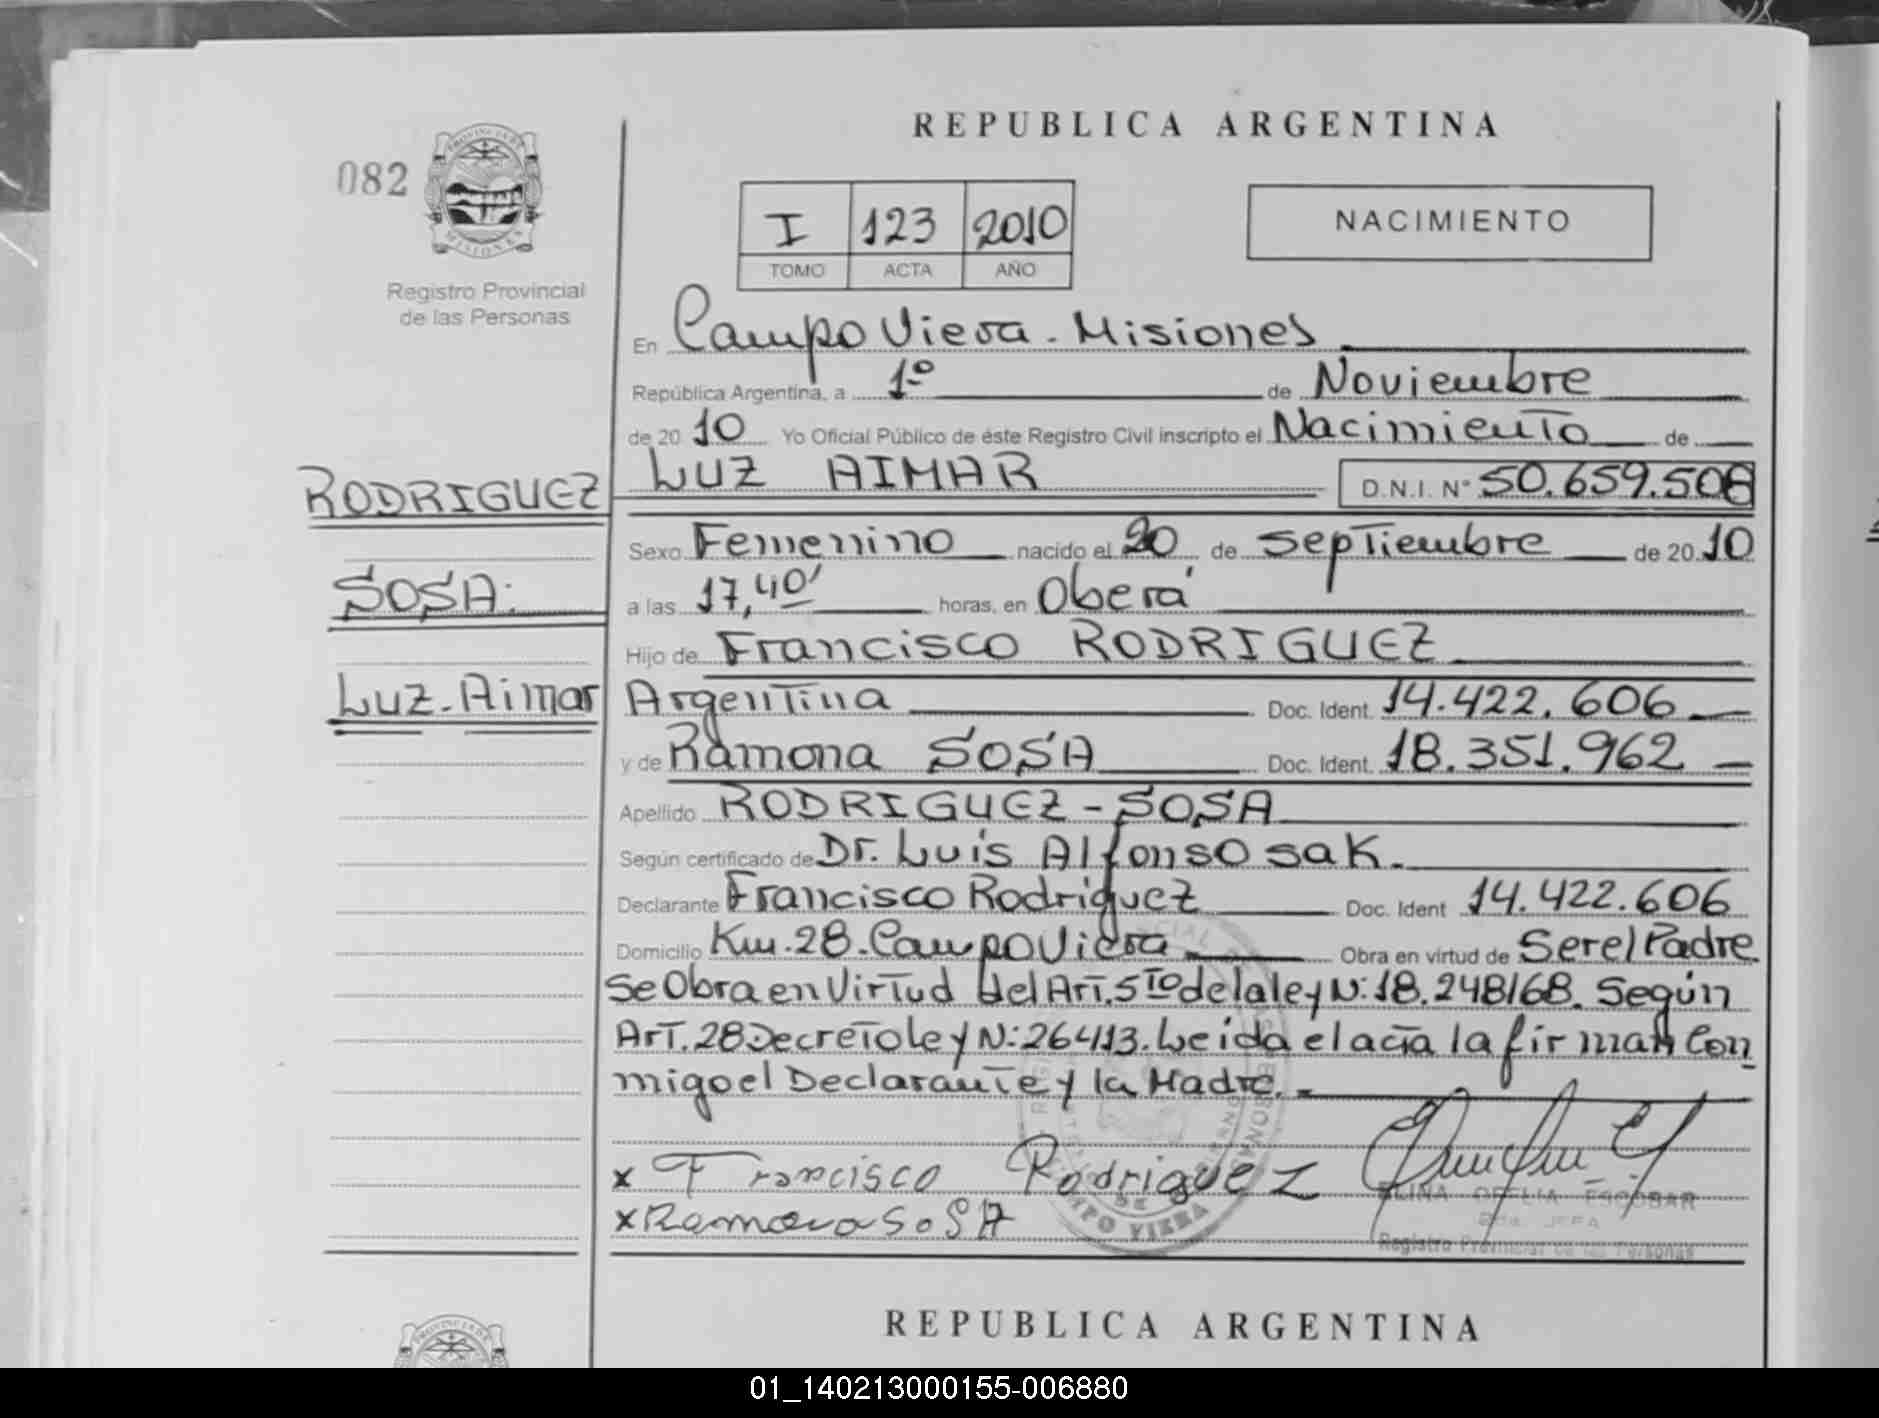 REPUBLICA ARGENTINA
082
PROVINCIA DE
MISIONES
Registro Provincial
de las Personas
I 123 2010
TOMO ACTA AÑO
NACIMIENTO
En Campo Viera - Misiones
República Argentina, a 1º de Noviembre
de 20 10 Yo Oficial Público de éste Registro Civil inscripto el Nacimiento de
RODRIGUEZ
LUZ AIMAR D.N.I. Nº 50.659.508
Sexo Femenino nacido el 20 de septiembre de 20 10
SOSA:
a las 17,40' horas, en Oberá
Hijo de Francisco RODRIGUEZ
Luz-Aimar
Argentina Doc. Ident. 14.422.606
y de Ramona SOSA Doc. Ident. 18.351.962
Apellido RODRIGUEZ-SOSA
Según certificado de Dr. Luis Alfonso sak.
Declarante Francisco Rodriguez Doc. Ident 14.422.606
Domicilio Km.28.Campo Viera Obra en virtud de Ser el Padre
Se Obra en Virtud del Art.5to de la ley N:18.248/68. Según
Art.28 Decreto Ley N:26413. Leida el acta la firman Con
migo el Declarante y la Madre.
x Francisco Rodriguez
x Ramona SoSA
CAMPO VIERA
ELINA OFELIA ESCOBAR
JEFA
Registro Provincial de las Personas
REPUBLICA ARGENTINA
PROVINCIA DE
01_140213000155-006880